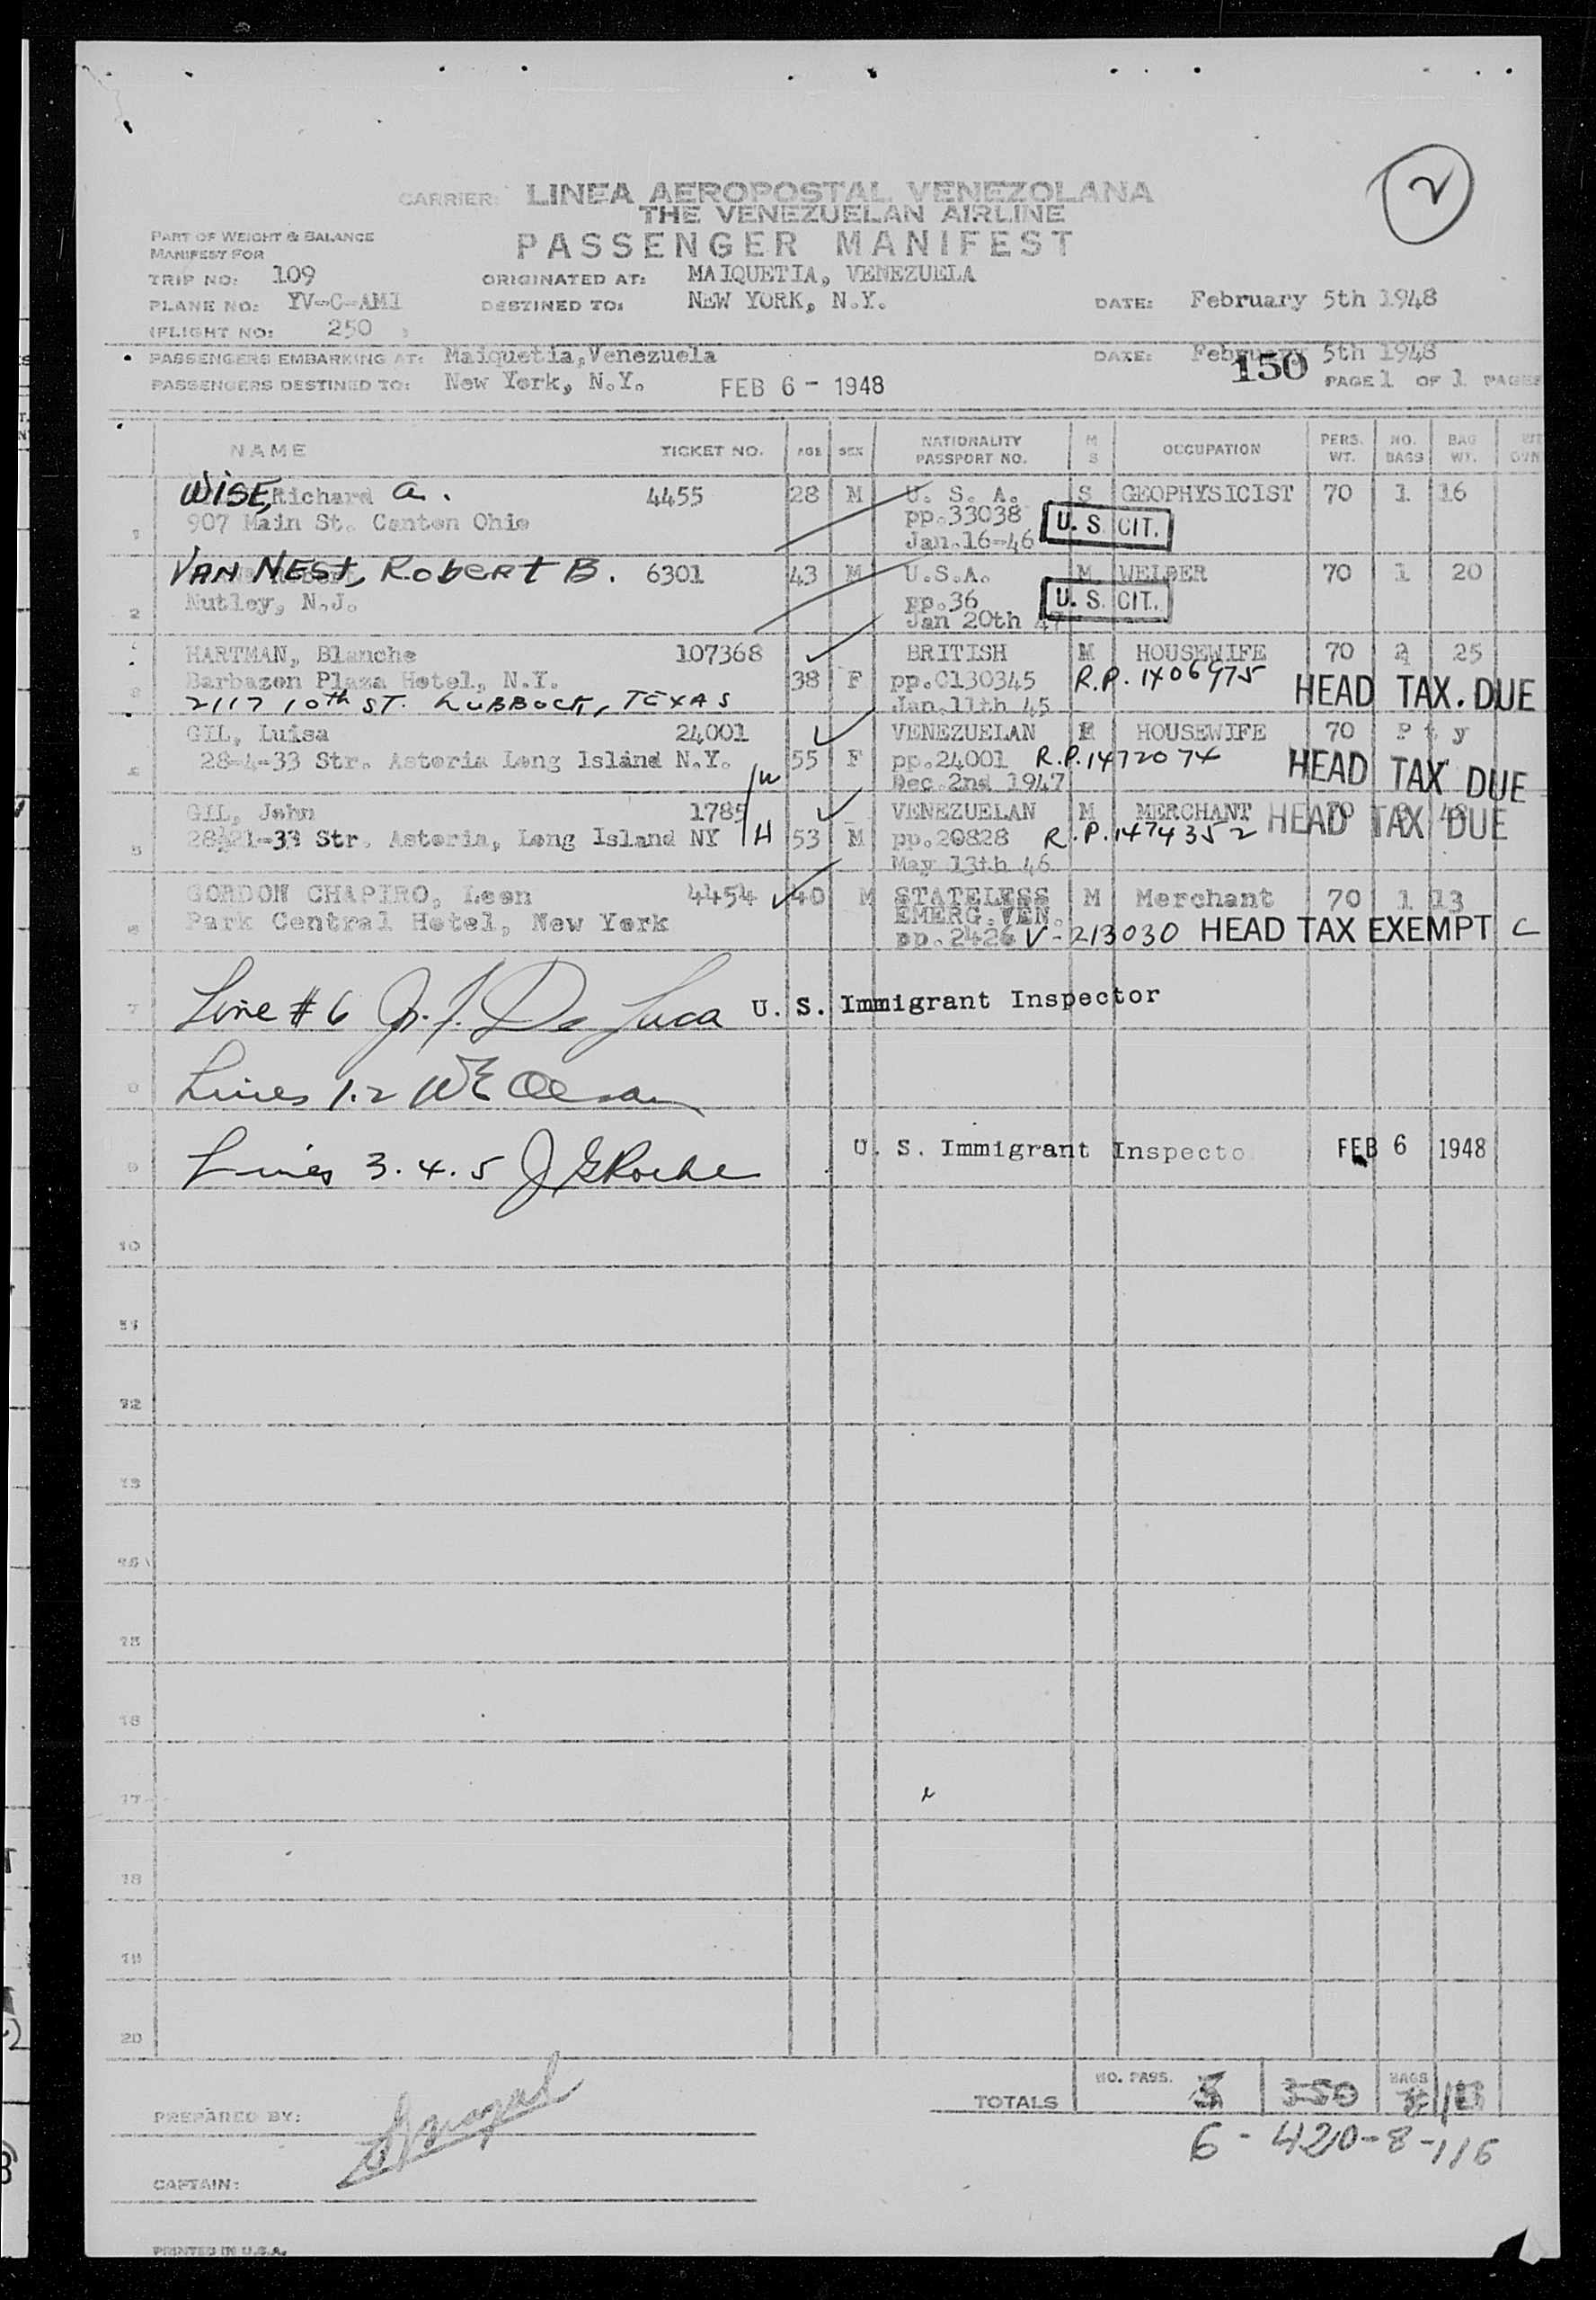 2
CARRIER: LINEA AEROPOSTAL VENEZOLANA
THE VENEZUELAN AIRLINE
PASSENGER MANIFEST
PART OF WEIGHT & BALANCE
MANIFEST FOR
TRIP NO: 109 ORIGINATED AT: MAIQUETIA, VENEZUELA
PLANE NO: YV-C-AMI DESTINED TO: NEW YORK, N.Y. DATE: February 5th 1948
(FLIGHT NO: 250
PASSENGERS EMBARKING AT: Maiquetia,Venezuela DATE: February 5th 1948
PASSENGERS DESTINED TO: New York, N.Y. FEB 6 - 1948 150 PAGE 1 OF 1 PAGES
NAME TICKET NO. AGE SEX NATIONALITY PASSPORT NO. M S OCCUPATION PERS. WT. NO. BAGS BAG WT.
1 WISE, Richard A. 4455 28 M U. S. A. S GEOPHYSICIST 70 1 16
907 Main St. Canton Ohio pp.33038 U. S. CIT.
Jan.16-46
2 VAN NEST, ROBERT B. 6301 43 M U.S.A. M WELDER 70 1 20
Nutley, N.J. pp.36 U. S. CIT.
Jan 20th 47
3 HARTMAN, Blanche 107368 BRITISH M HOUSEWIFE 70 2 25
Barbazon Plaza Hotel, N.Y. 38 F pp.C130345 R.P. 1406975 HEAD TAX. DUE
2117 10th ST. LUBBOCK, TEXAS Jan.11th 45
4 GIL, Luisa 24001 VENEZUELAN M HOUSEWIFE 70 P t y
28-4-33 Str. Astoria Long Island N.Y. 55 F pp.24001 R.P.1472074 HEAD TAX DUE
W Dec.2nd 1947
5 GIL, John 1785 VENEZUELAN M MERCHANT 70 HEAD TAX DUE
Str. Astoria, Long Island NY H 53 M pp.20828 R.P.1474352
May 13th 46
6 GORDON CHAPIRO, Leon 4454 40 M STATELESS M Merchant 70 1 13
Park Central Hotel, New York EMERG.VEN.
pp.2426 V-213030 HEAD TAX EXEMPT C
7 Line #6 De Luca U. S. Immigrant Inspector
8 Lines 1.2
9 Lines 3.4.5 J G Roche U. S. Immigrant Inspecto FEB 6 1948
10
11
12
13
14
15
16
17
18
19
20
TOTALS NO. PASS. 5 350 BAGS
6 - 420-8-116
PREPARED BY:
CAPTAIN:
PRINTED IN U.S.A.